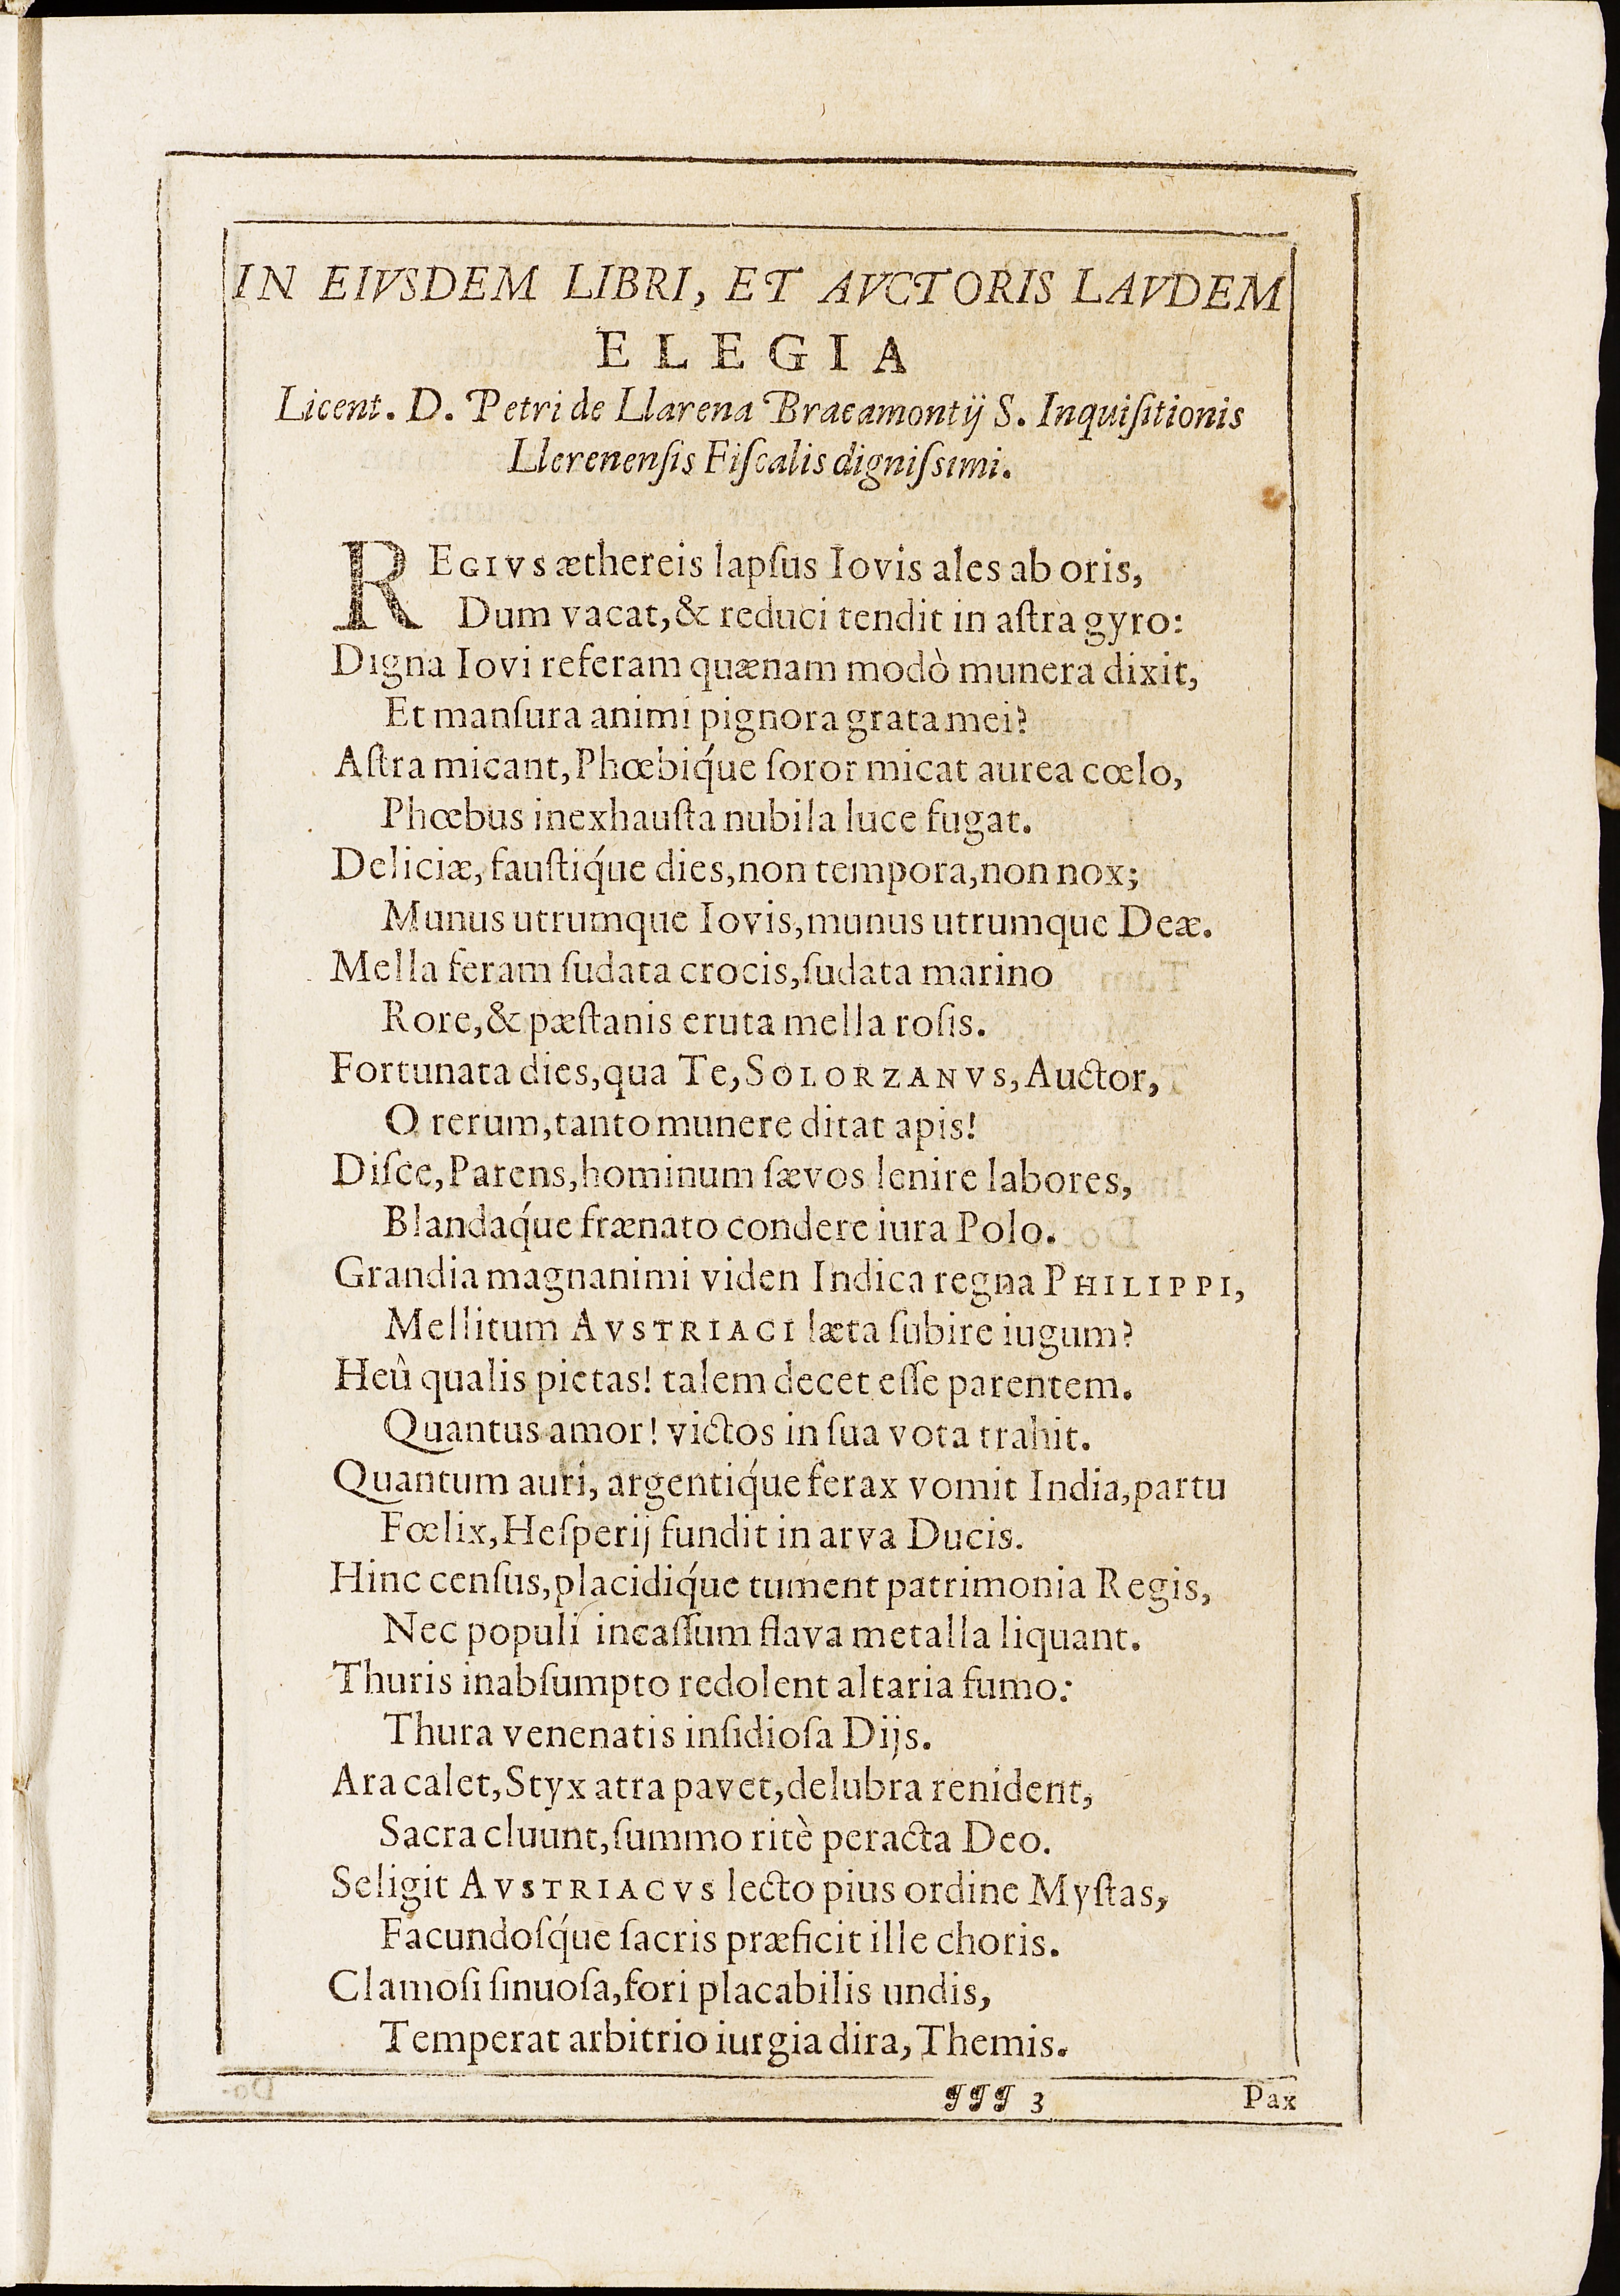 IN EIVSDEM LIBRI, ET AVCTORIS LAVDEM
ELEGIA
Licent. D. Petri de Llarena Bracamontij S. Inquiſitionis
Llerenenſis Fiſcalis digniſsimi.
REGIVS æthereis lapſus Iovis ales ab oris,
Dum vacat, & reduci tendit in aſtra gyro:
Digna Iovi referam quænam modò munera dixit,
Et manſura animi pignora grata mei?
Aſtra micant, Phœbiq́ue ſoror micat aurea cœlo,
Phœbus inexhauſta nubila luce fugat.
Deliciæ, fauſtiq́ue dies, non tempora, non nox;
Munus utrumque Iovis, munus utrumque Deæ.
Mella feram ſudata crocis, ſudata marino
Rore, & pæſtanis eruta mella roſis.
Fortunata dies, qua Te, SOLORZANVS, Auctor,
O rerum, tanto munere ditat apis!
Diſce, Parens, hominum ſævos lenire labores,
Blandaq́ue frænato condere iura Polo.
Grandia magnanimi viden Indica regna PHILIPPI,
Mellitum AVSTRIACI læta ſubire iugum?
Heû qualis pietas! talem decet eſſe parentem.
Quantus amor! victos in ſua vota trahit.
Quantum auri, argentiq́ue ferax vomit India, partu
Fœlix, Heſperij fundit in arva Ducis.
Hinc cenſus, placidiq́ue tument patrimonia Regis,
Nec populi incaſſum flava metalla liquant.
Thuris inabſumpto redolent altaria fumo:
Thura venenatis inſidioſa Dijs.
Ara calet, Styx atra pavet, delubra renident,
Sacra cluunt, ſummo ritè peracta Deo.
Seligit AVSTRIACVS lecto pius ordine Myſtas,
Facundoſq́ue ſacris præficit ille choris.
Clamoſi ſinuoſa, fori placabilis undis,
Temperat arbitrio iurgia dira, Themis.
¶¶¶ 3 Pax